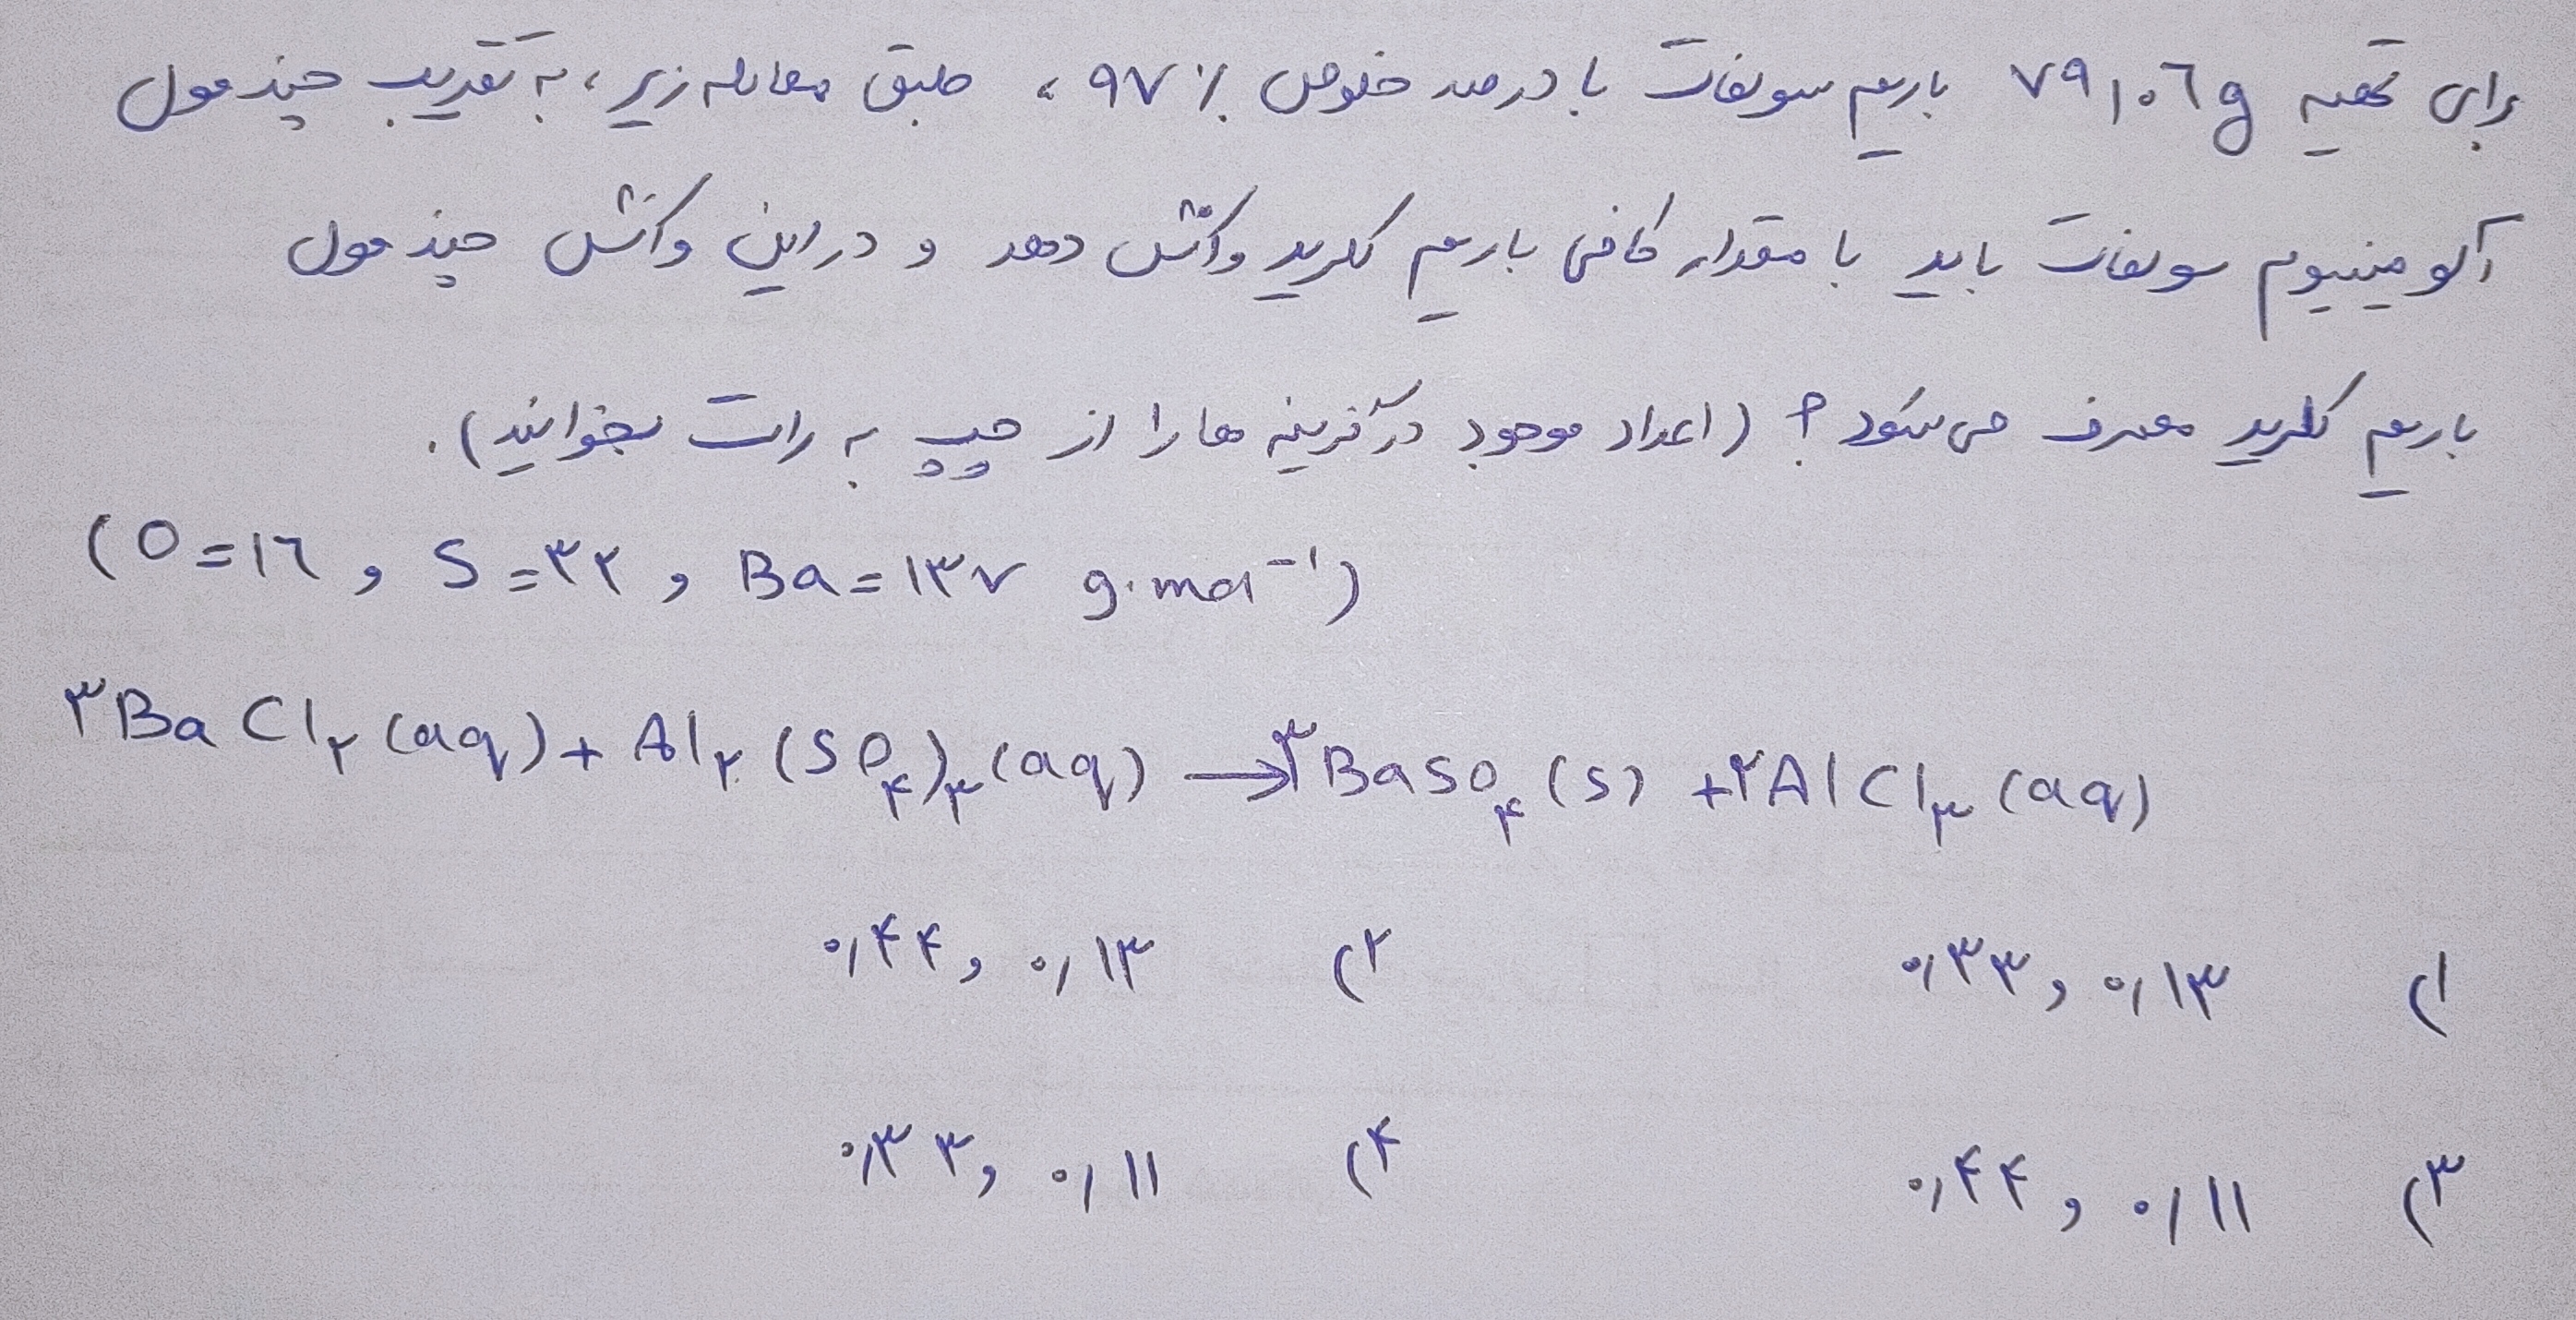 برای تهیه ۷۹٫۰۶g باریم سولفات با درصد خلوص ۹۷٪، طبق معادله زیر، به تقریب چند مول
آلومینیوم سولفات باید با مقدار کافی باریم کلرید واکنش دهد و در این واکنش چند مول
باریم کلرید مصرف می‌شود؟ (اعداد موجود در گزینه ها را از چپ به راست بخوانید).
(O=۱۶ , S=۳۲ , Ba=۱۳۷ g.mol⁻¹)
۳BaCl₂(aq) + Al₂(SO₄)₃(aq) → ۳BaSO₄(s) + ۲AlCl₃(aq)
۱) ۰٫۳۳ , ۰٫۱۳ ۲) ۰٫۴۴ , ۰٫۱۳
۳) ۰٫۴۴ , ۰٫۱۱ ۴) ۰٫۳۳ , ۰٫۱۱